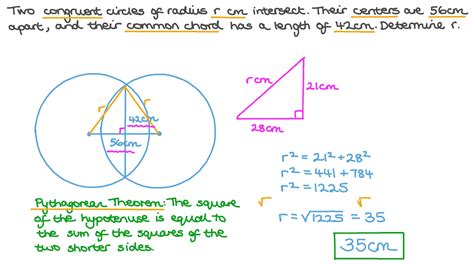 Two congruent circles of radius r cm intersect. Their centers are 56cm
apart, and their common chord has a length of 42cm. Determine r.
r
r
42cm
56cm
r cm
21cm
28cm
r² = 21² + 28²
r² = 441 + 784
r² = 1225
√ √
r = √1225 = 35
35cm
Pythagorean Theorem: The square
of the hypotenuse is equal to
the sum of the squares of the
two shorter sides.